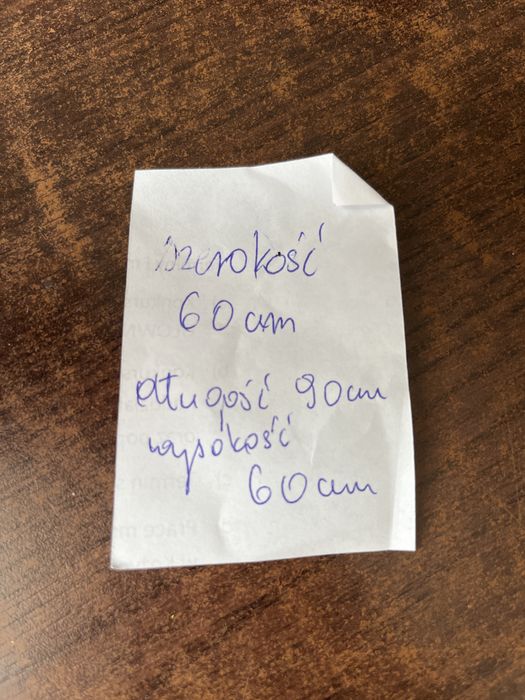 szerokość
60 cm
długość 90 cm
wysokość
60 cm